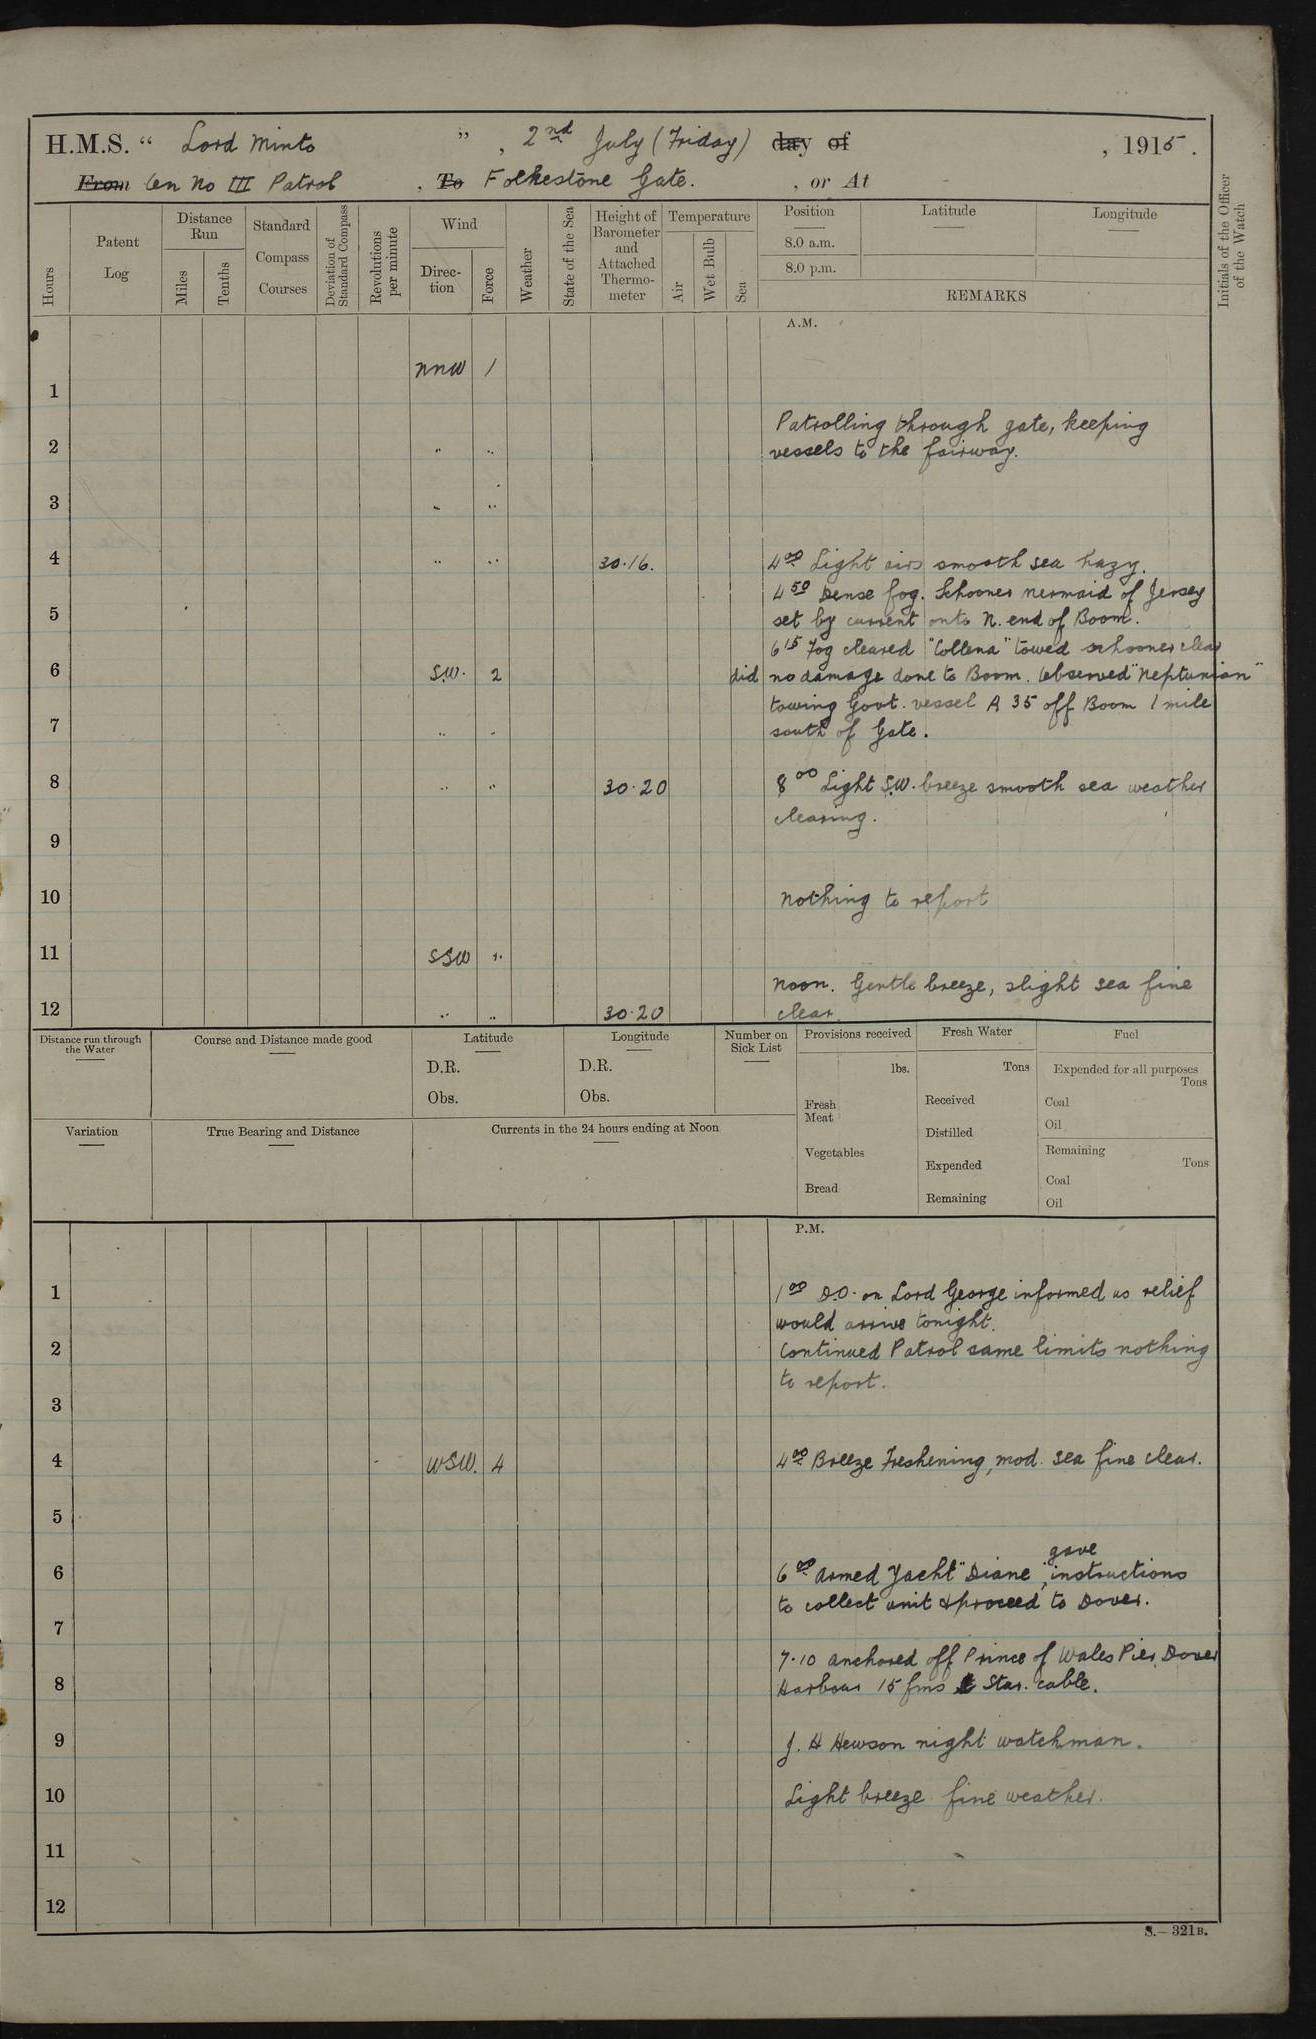 H.M.S. “ Lord Minto ” , 2nd July (Friday) day of , 1915.
From On No III Patrol . To Folkestone Gate. , or At
Hours
Patent Log
Distance Run
Miles
Tenths
Standard Compass Courses
Deviation of Standard Compass
Revolutions per minute
Wind
Direc-tion
Force
Weather
State of the Sea
Height of Barometer and Attached Thermo-meter
Temperature
Air
Wet Bulb
Sea
Position
8.0 a.m.
8.0 p.m.
Latitude
Longitude
REMARKS
Initials of the Officer of the Watch
A.M.
NNW 1
1
Patrolling through gate, keeping
2 " " vessels to the fairway.
3 " "
4 " " 30.16. 4 00 Light airs smooth sea hazy.
4 50 Dense fog. Schooner Mermaid of Jersey
5 set by current onto N. end of Boom.
6 15 Fog cleared "Collena" towed schooner clear
6 S.W. 2 did no damage done to Boom. Observed "Neptunian"
towing Govt. vessel A 35 off Boom 1 mile
7 " " south of Gate.
8 " " 30.20 8 00 Light S.W. breeze smooth sea weather
clearing.
9
10 Nothing to report
11 SSW "
Noon. Gentle breeze, slight sea fine
12 " " 30.20 clear
Distance run through the Water
Course and Distance made good
Latitude
D.R.
Obs.
Longitude
D.R.
Obs.
Number on Sick List
Provisions received
lbs.
Fresh Meat
Vegetables
Bread
Fresh Water
Tons
Received
Distilled
Expended
Remaining
Fuel
Expended for all purposes
Tons
Coal
Oil
Remaining
Tons
Coal
Oil
Variation
True Bearing and Distance
Currents in the 24 hours ending at Noon
P.M.
1 1 00 D.O. on Lord George informed us relief
would arrive tonight.
2 Continued Patrol same limits nothing
to report.
3
4 WSW. 4 4 00 Breeze Freshening, mod. sea fine clear.
5
gave
6 6 00 Armed Yacht "Diane" instructions
to collect unit & proceed to Dover.
7
7.10 Anchored off Prince of Wales Pier, Dover
8 Harbour 15 fms Star. cable.
9 J. H Hewson night watchman.
10 Light breeze fine weather.
11
12
S.—321B.